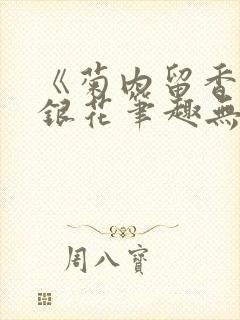 《菊内留香
銀花筆趣無
周八寶